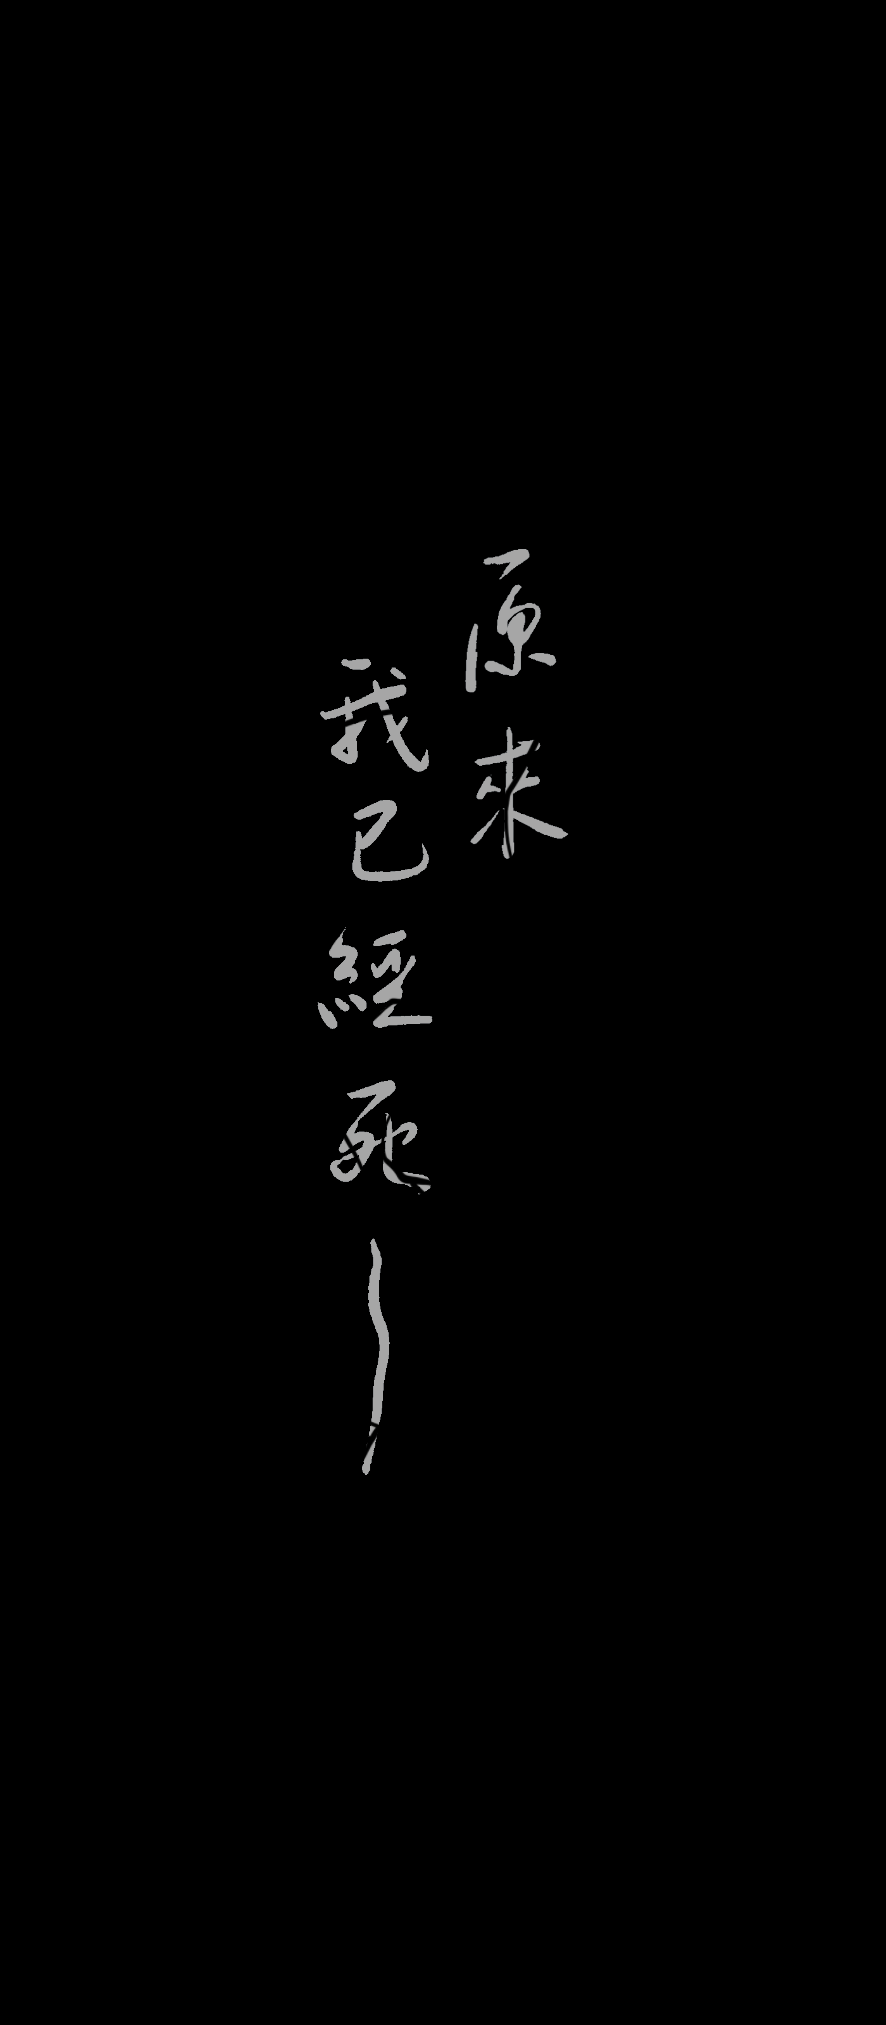 原來
我已經死～